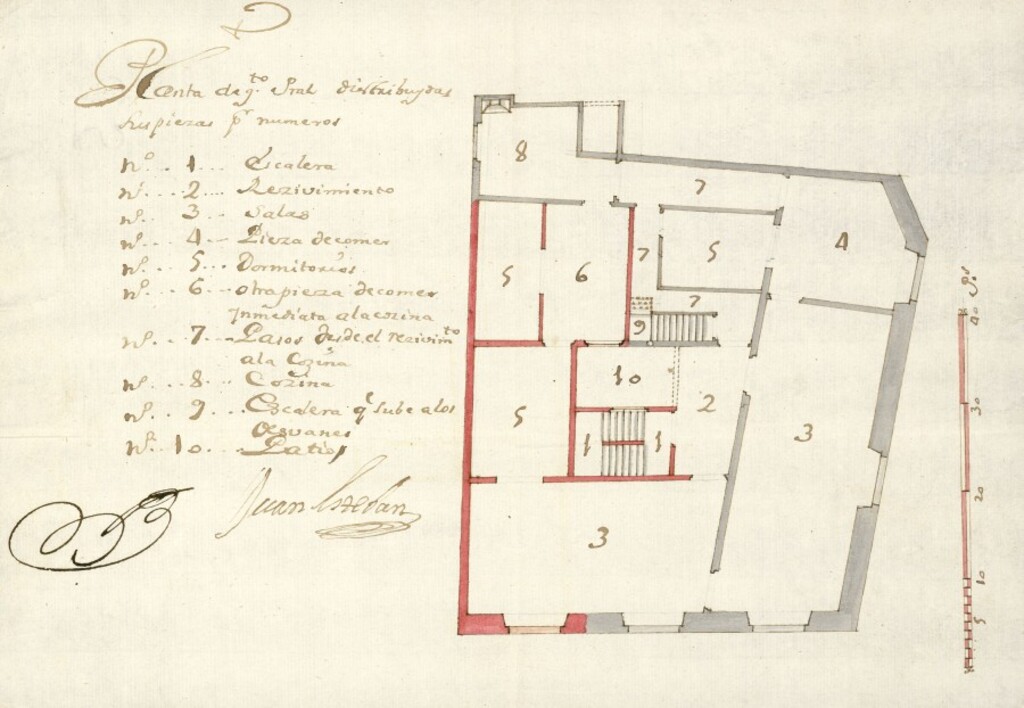 Planta de q.to Pral distribuydas
sus piezas pr numeros
no. .. 1 ... Escalera
no. .. 2 ... Rezivimiento
no. .. 3 ... Salas
no. .. 4 ... Pieza de comer
no. .. 5 ... Dormitorios
no. .. 6 ... otra pieza de comer
Inmediata a la cozina
no. .. 7 ... Pasos desde el rezivim.to
a la Cozina
no. .. 8 ... Cozina
no. .. 9 ... Escalera q sube a los
Desvanes
no. .. 10 ... Patio
Juan Esteban
8
7
4
5
7
5
6
7
9
10
2
3
5
1
1
3
40 Ps
30
20
10
5